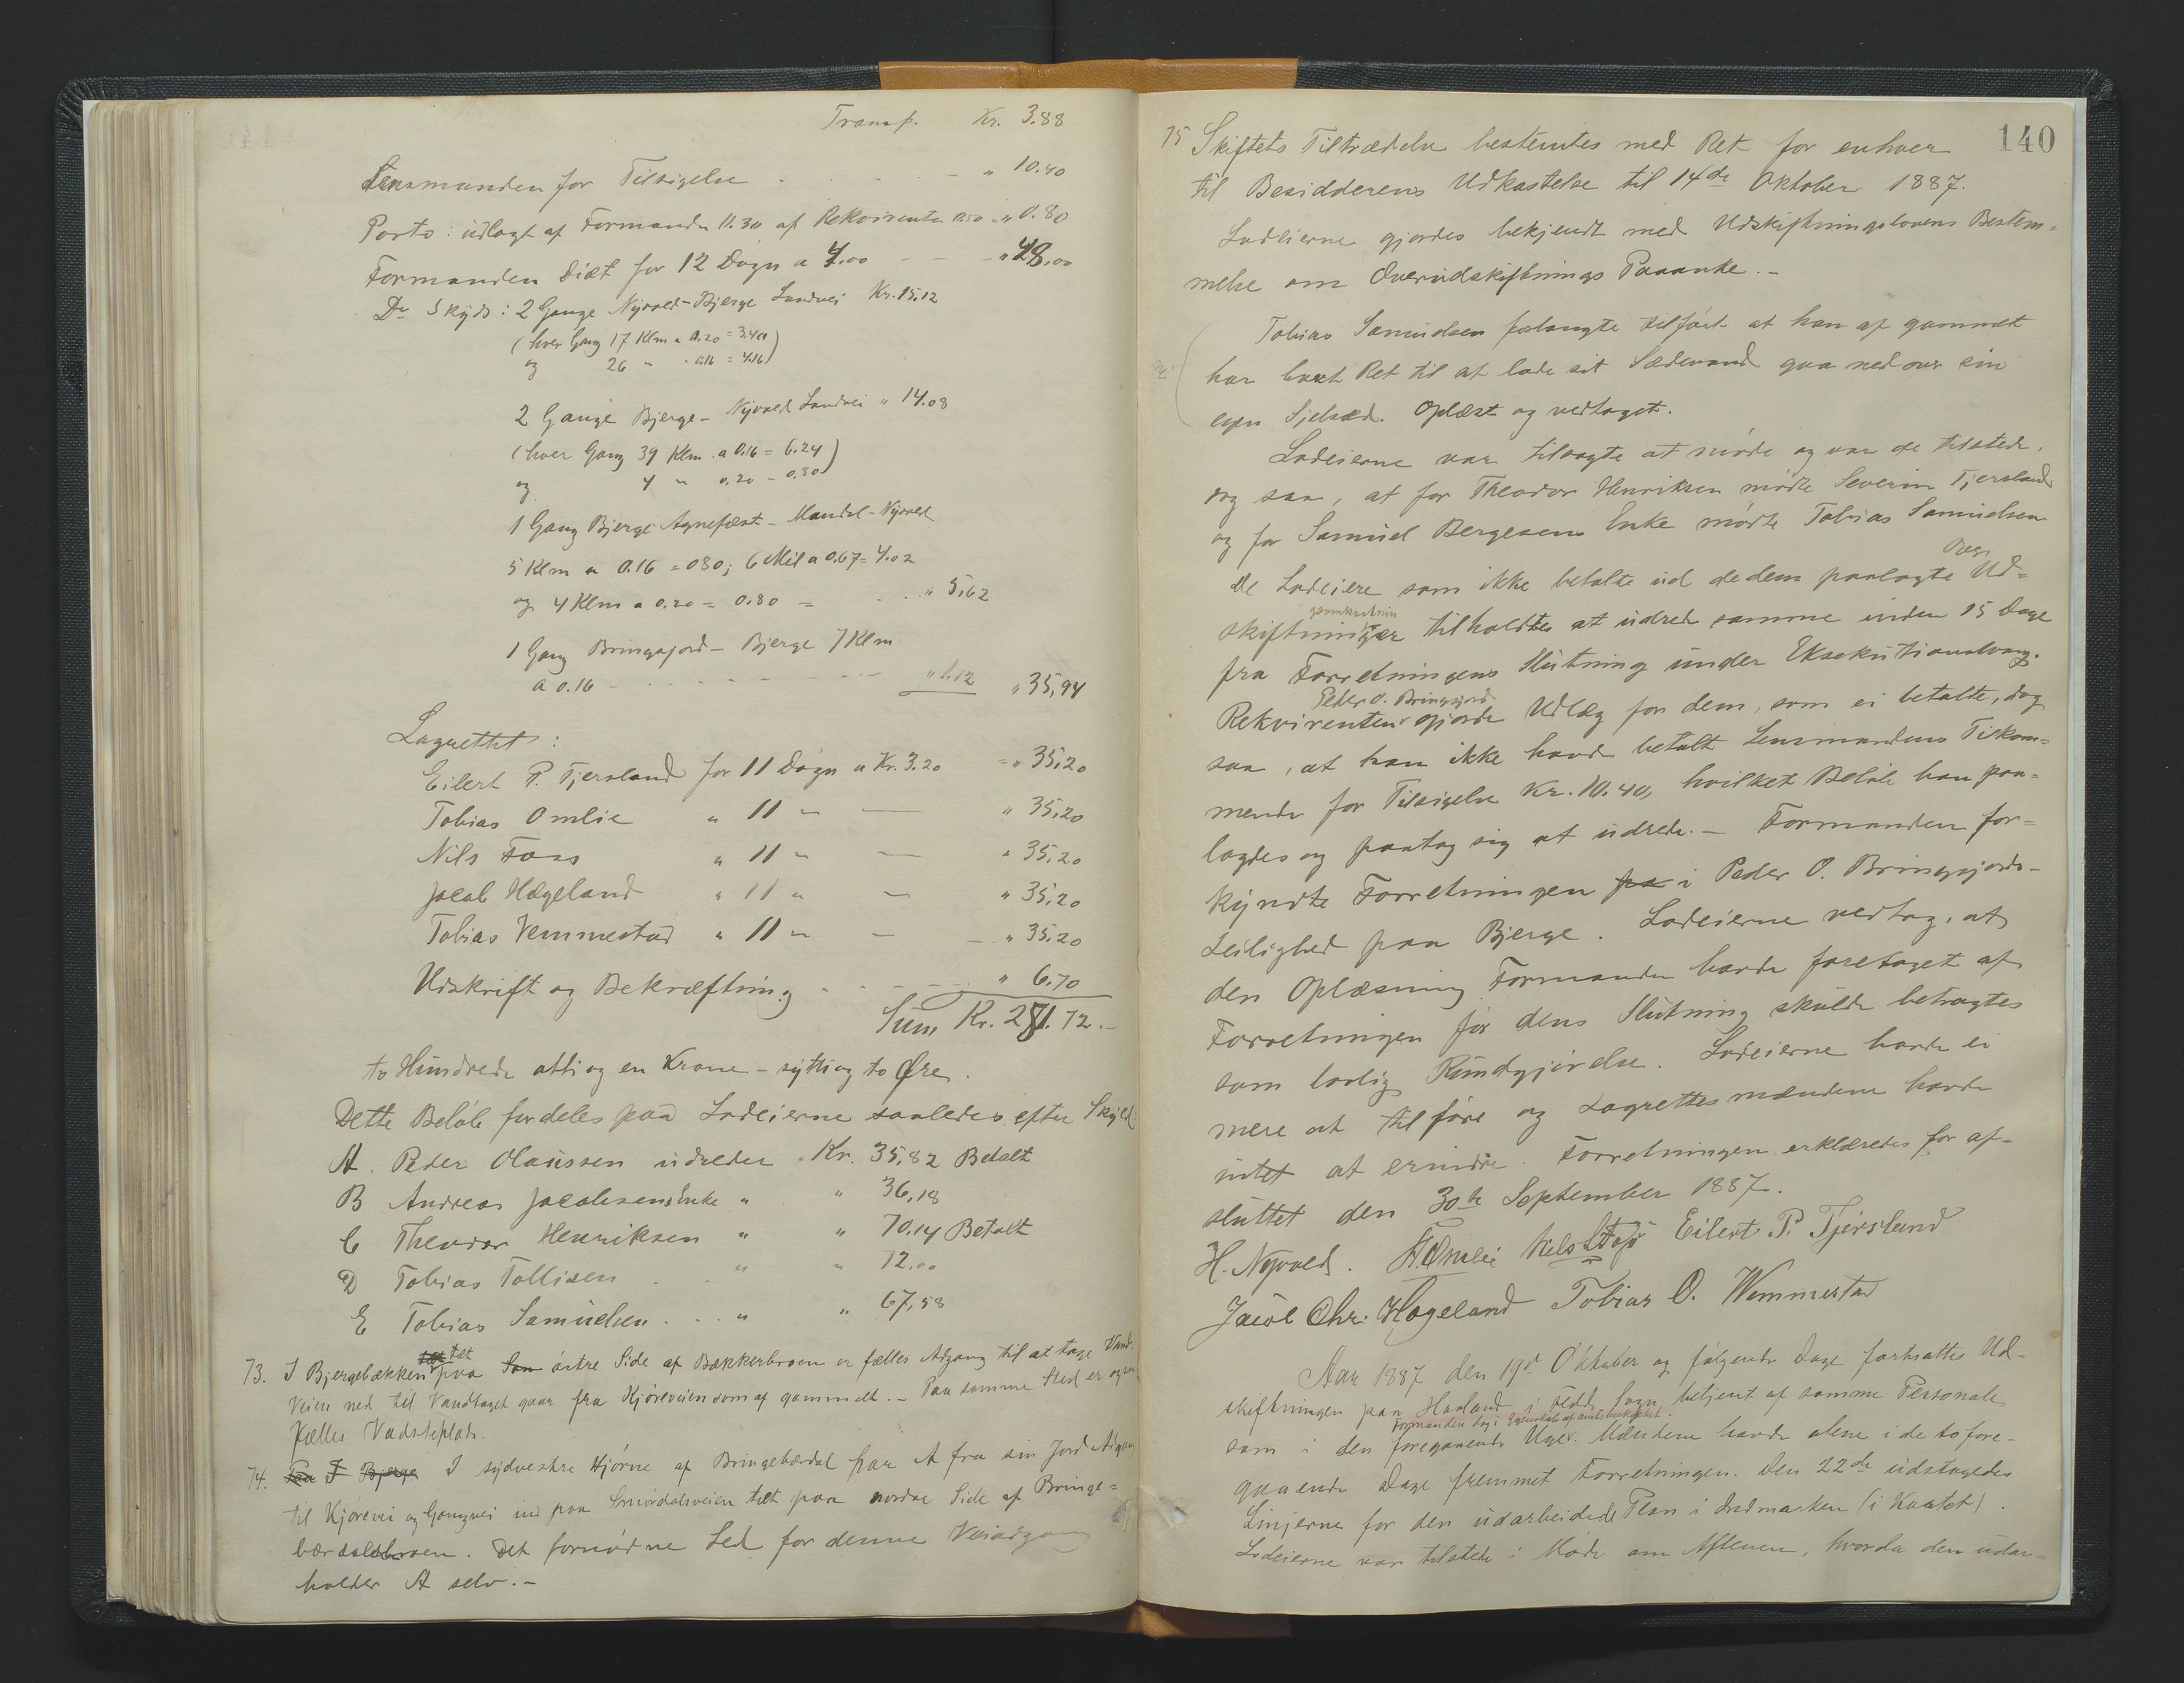 Transp. Kr. 3.88
Lensmanden for Tilsigelse - - - - „ 10.40
Porto: udlagt af Formanden 0.30 af Rekvirenten 0.50 = „ 0.80
Formanden Diæt for 12 Døgn a 4.00 - - - „ 48.00
Do Skyds: 2 Gange Nyvold-Bjerge Landvei Kr. 15.12
(hver Gang 17 Klm a 0.20 = 3.40
og 26 „ - 0.16 = 4.16)
2 Gange Bjerge - Nyvold Landvei „ 14.08
(hver Gang 39 Klm a 0.16 = 6.24
og 4 „ 0.20 - 0.80)
1 Gang Bjerge Agnefæst - Mandal - Nyvold
5 Klm a 0.16 = 0.80; 6 Mil a 0.67 = 4.02
og 4 Klm a 0.20 = 0.80 = - - „ 5.62
1 Gang Bringsjord - Bjerge 7 Klm
a 0.16 - - - - - - „ 1.12 „ 35,94
Lagrettet:
Eilert P. Tjersland for 11 Døgn a Kr. 3.20 = „ 35,20
Tobias Omlie „ 11 „ — „ 35,20
Nils Foss „ 11 „ — „ 35,20
Jacob Hægeland „ 11 „ — „ 35,20
Tobias Vemmestad „ 11 „ — „ 35,20
Udskrift og Bekræftning - - - - „ 6.70
Sum Kr. 281.72.-
to Hundrede otti og en Krone - sytti og to Øre.
Dette Beløb fordeles paa Lodeierne saaledes efter Skyld
A. Peder Olaussen udreder Kr. 35,82 Betalt
B Andreas Jacobsens Enke „ „ 36,18
C Theodor Henriksen „ „ 70.14 Betalt
D Tobias Tollisen . . „ „ 72.00
E Tobias Samuelsen . . . „ „ 67,58
73. I Bjergebækken tæt paa østre Side af Bækkerbroen er fælles Adgang til at tage Vand.
Veien ned til Vandtaget gaar fra Kjøreveien som af gammelt. - Paa samme Sted er ogsaa
fælles Vadskeplads.
74. Paa I Bjerge I sydvestre Hjørne af Bringebærdal har A fra sin Jord Adgang
til Kjørevei og Gangvei ind paa Smørdalsveien tæt paa nordre Side af Bringe=
bærdalsbroen. Det fornødne Led for denne Veiadgang
holder A selv. -
140
75 Skiftets Tiltrædelse bestemtes med Ret for enhver
til Besidderens Udkastelse til 14de Oktober 1887.
Lodeierne gjordes bekjendt med Udskiftningslovens Bestem=
melse om Overudskiftnings Paaanke. -
Tobias Samuelsen forlangte tilført at han af gammelt
har havt Ret til at lade sit Sædevand gaa ned over sin
egen Sjelsæd. Oplæst og vedtaget.
Lodeierne var tilsagte at møde og var de tilstede,
dog saa, at for Theodor Henriksen mødte Severin Tjersland
og for Samuel Bergesens Enke mødte Tobias Samuelsen
De Lodeiere som ikke betalte ud de dem paalagte Ud=
skiftninger tilholdtes at udrede samme inden 15 Dage
fra Forretningens Slutning under Eksekutionstvang.
Peder O. Bringsjord
Rekvirenten gjorde Udlæg for dem, som ei betalte, dog
saa, at han ikke havde betalt Lensmandens Tilkom=
mende for Tilsigelse Kr. 10.40, hvilket Beløb han paa=
lagdes og paatog sig at udrede. - Formanden for=
kyndte Forretningen pa i Peder O. Bringsjords
Leilighed paa Bjerge. Lodeierne vedtog, at
den Oplæsning Formanden havde foretaget af
Forretningen før dens Slutning skulde betragtes
som lovlig Kundgjørelse. Lodeierne havde ei
mere at tilføre og Lagrettesmændene havde
intet at erindre. Forretningen erklæredes for af=
sluttet den 30te September 1887.
H. Nyvold. T. Omlie Nils L Foss Eilert P. Tjersland
Jacob Chr. Hageland Tobias O. Wemmestad
Aar 1887 den 19de Oktober og følgende Dage fortsattes Ud=
skiftningen paa Haaland i Sogn betjent af samme Personale
Formanden dog i
som i den foregaaende Uge. Mændene havde alene i de to fore=
gaaende Dage fremmet Forretningen. Den 22de udstagedes
Linjerne for den udarbeidede Plan i Indmarken (i Kaatet).
Lodeierne var tilstede i Møde om Aftenen, hvorda den udar=